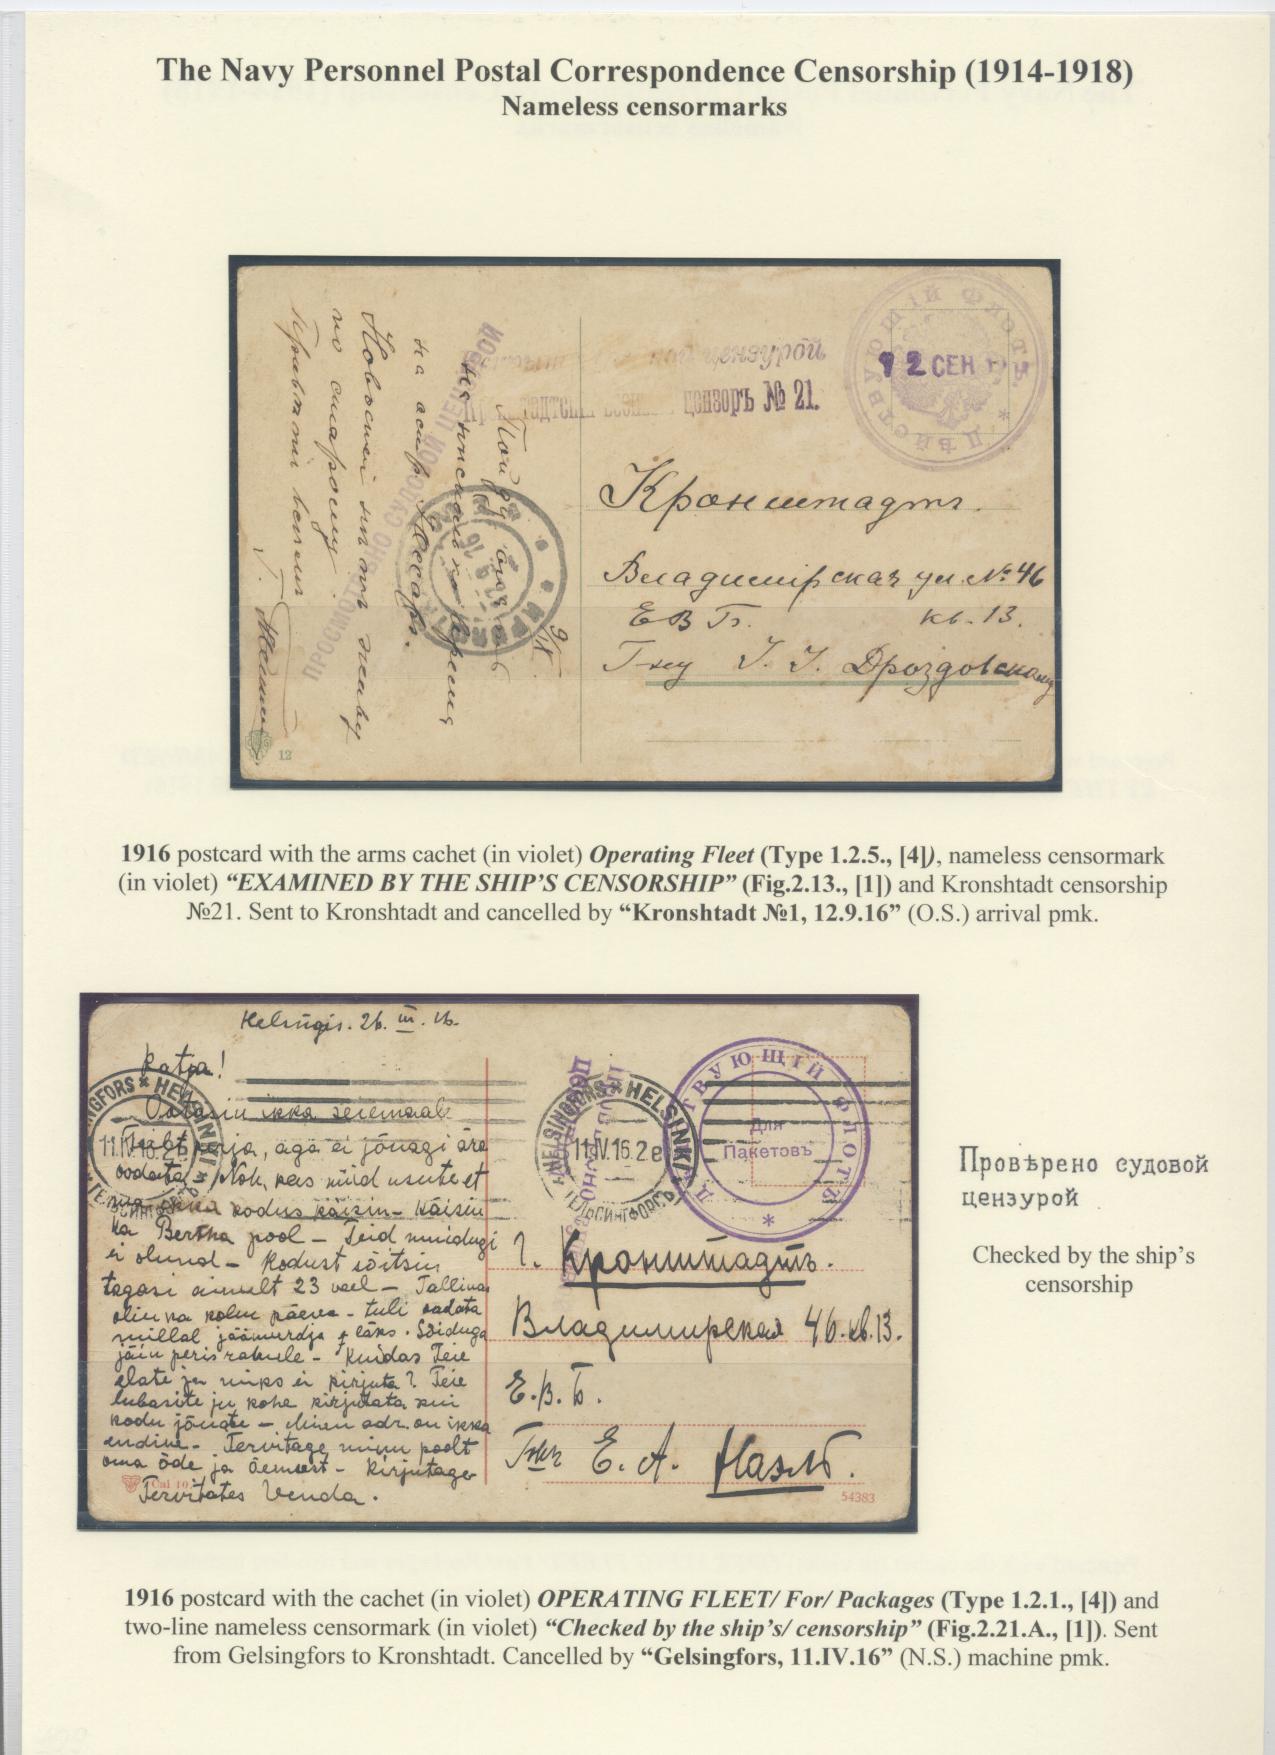 The Navy Personnel Postal Correspondence Censorship (1914-1918)
Nameless censormarks
цензурой
цензоръ № 21.
ДѢЙСТВУЮЩІЙ ФЛОТЪ
*
12 СЕН
ПРОСМОТРѢНО СУДОВОЙ ЦЕНЗУРОЙ
на
Новостей нѣтъ живу
по старому.
9/IX
12
Кронштадтъ.
Владимірская ул. № 46
Е В Б. кв. 13.
Г-ну І. І. Дроздовскому
1916 postcard with the arms cachet (in violet) Operating Fleet (Type 1.2.5., [4]), nameless censormark
(in violet) “EXAMINED BY THE SHIP’S CENSORSHIP” (Fig.2.13., [1]) and Kronshtadt censorship
№21. Sent to Kronshtadt and cancelled by “Kronshtadt №1, 12.9.16” (O.S.) arrival pmk.
Helsingis. 26. III. 16.
Katja!
Ootasin ikka seiemaale
Teilt kirja, aga ei jõuagi ära
oodata. Noh, kas nüid usute et
ma ikka kodus käisin – Käisin
ka Bertha pool – Teid muidugi
ei olnud – Kodust sõitsin
tagasi ainult 23 veel – Tallinas
olin ka kolm päeva – tuli oodata
millal jäämurdja läks. Sõiduga
jäin peris rahule – Kuidas Teie
elate ja miks ei kirjuta? Teie
lubasite ju kohe kirjutata kui
kodu jõuate – Minu adr. on ikka
endine – Tervitage minu poolt
oma õde ja õemeest – Kirjutage
Tervitates Venda.
HELSINGFORS * HELSINKI *
11.IV.16. 2 e
ГЕЛЬСИНГФОРСЪ
HELSINGFORS * HELSINKI *
11.IV.16. 2 e
ГЕЛЬСИНГФОРСЪ
ДѢЙСТВУЮЩІЙ ФЛОТЪ
Для
Пакетовъ
*
г. Кронштадтъ.
Владимирская 46. кв. 13.
Е. В. Б.
Гжѣ Е. А. Наэль.
54383
Провѣрено судовой
цензурой
Checked by the ship’s
censorship
1916 postcard with the cachet (in violet) OPERATING FLEET/ For/ Packages (Type 1.2.1., [4]) and
two-line nameless censormark (in violet) “Checked by the ship’s/ censorship” (Fig.2.21.A., [1]). Sent
from Gelsingfors to Kronshtadt. Cancelled by “Gelsingfors, 11.IV.16” (N.S.) machine pmk.